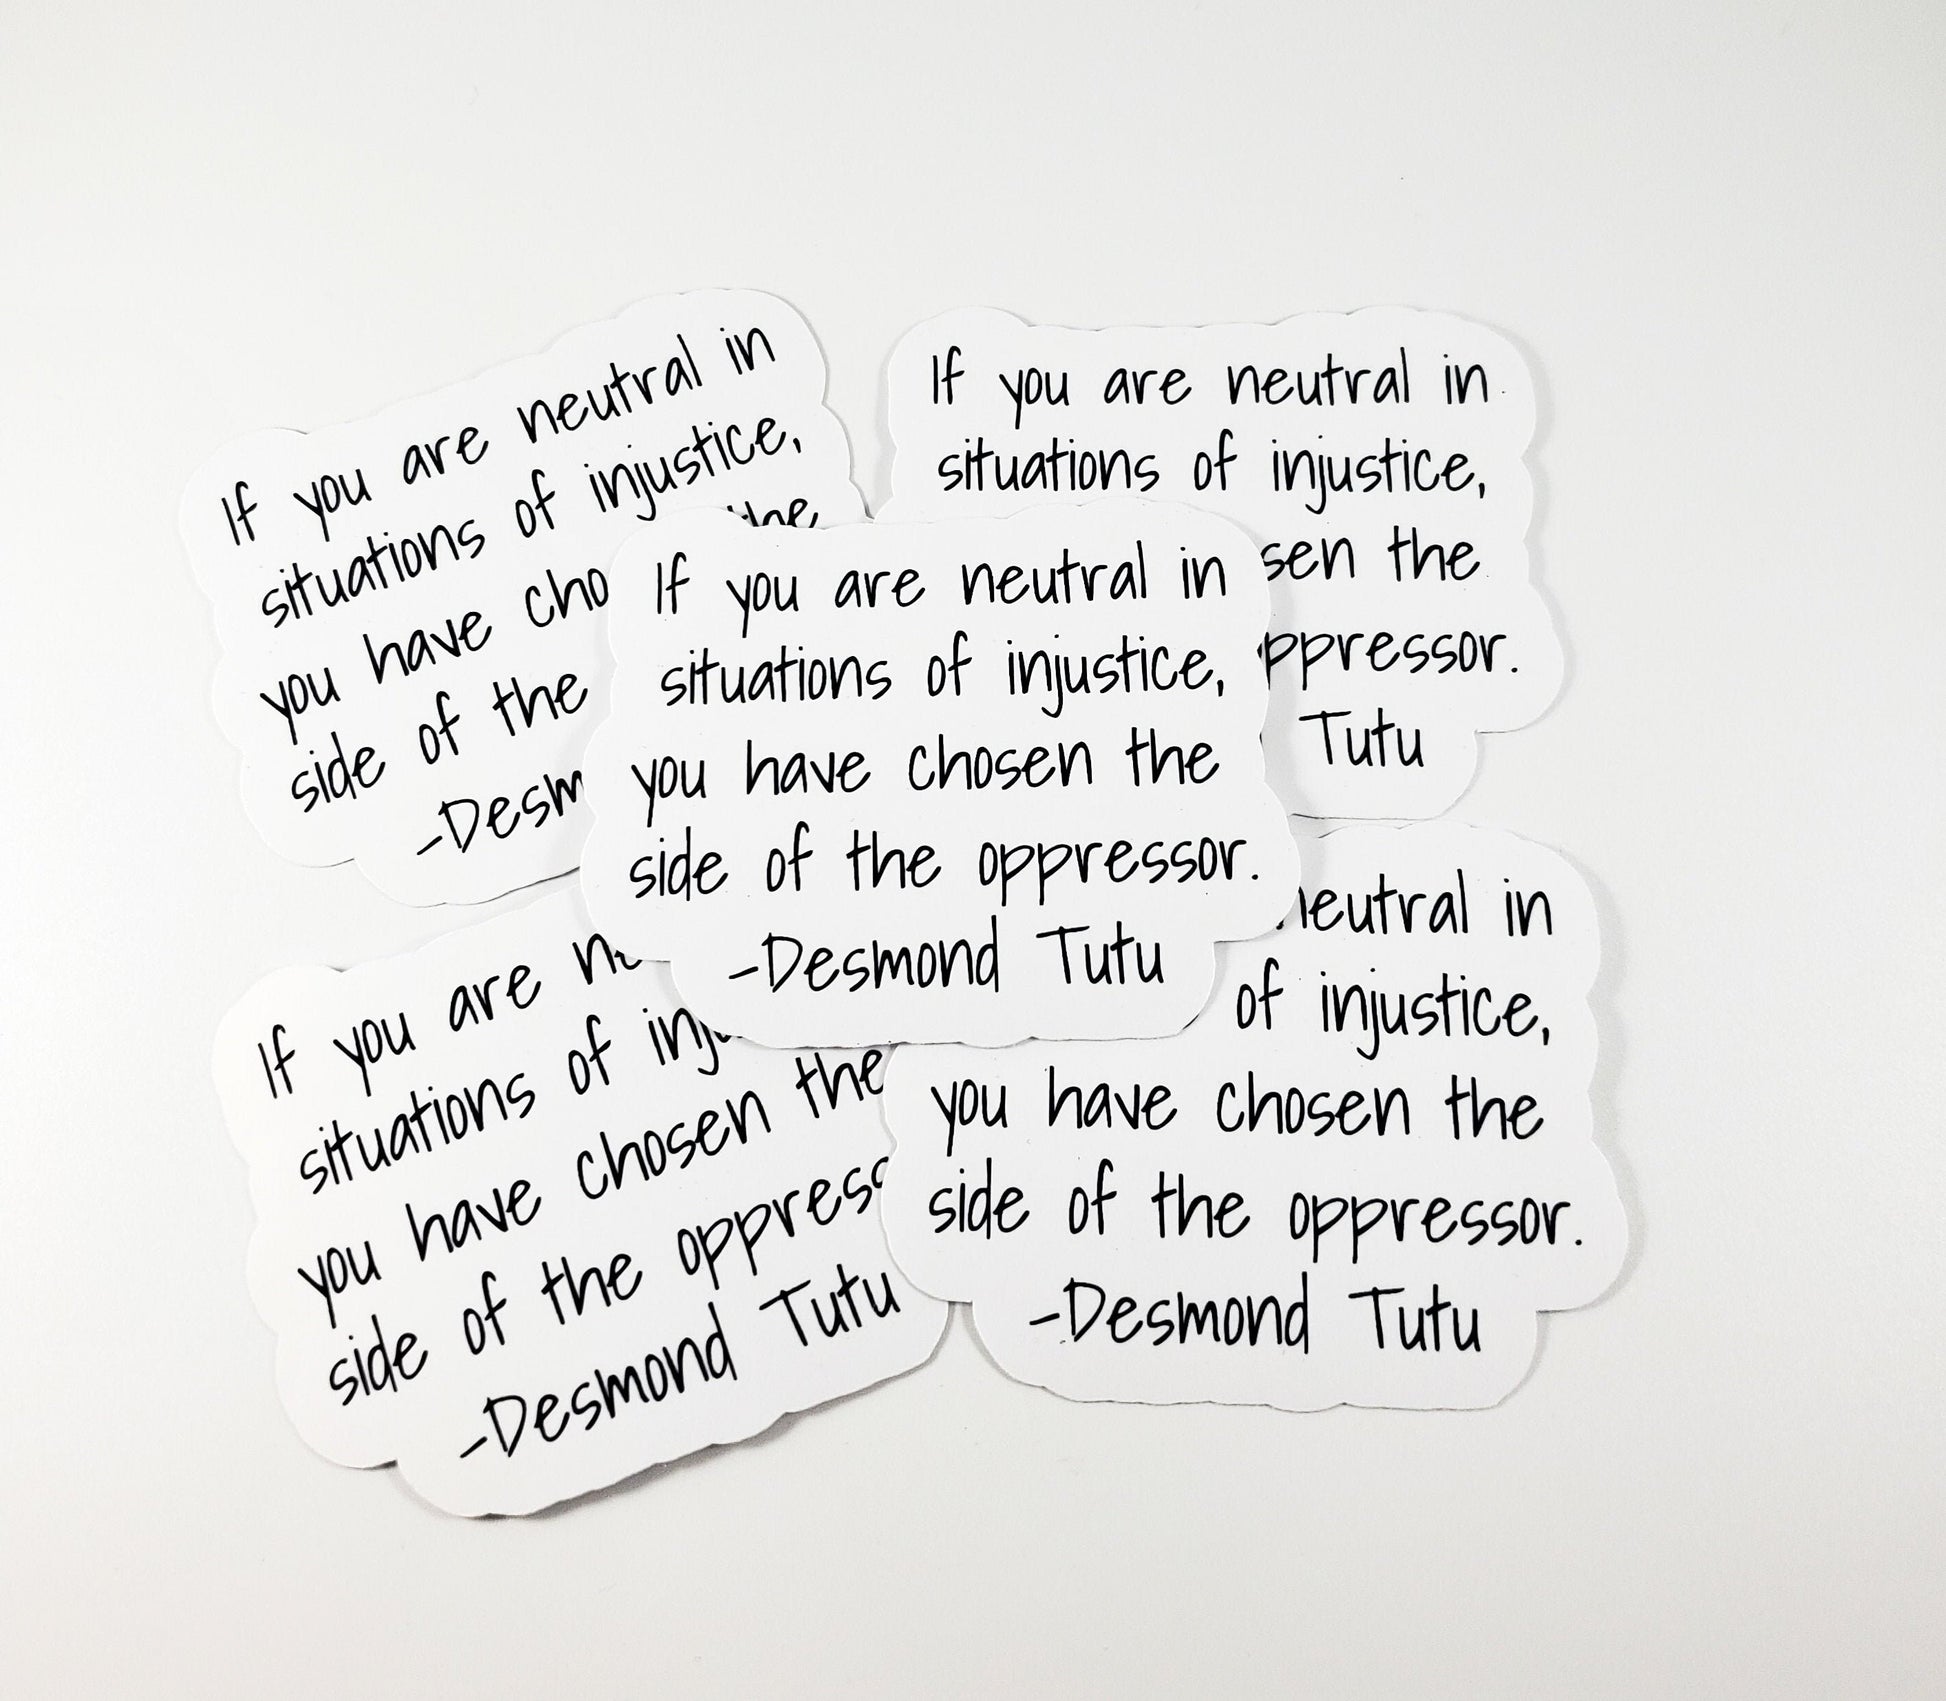 If you are neutral in
situations of injustice,
you have
side of the
If you are neutral in
situations of injustice,
the
Tutu
If you are neutral in
situations of injustice,
you have chosen the
side of the oppressor.
-Desmond Tutu
If you are
situations of
you have chosen the
side of the
-Desmond Tutu
in
of injustice,
you have chosen the
side of the oppressor.
-Desmond Tutu